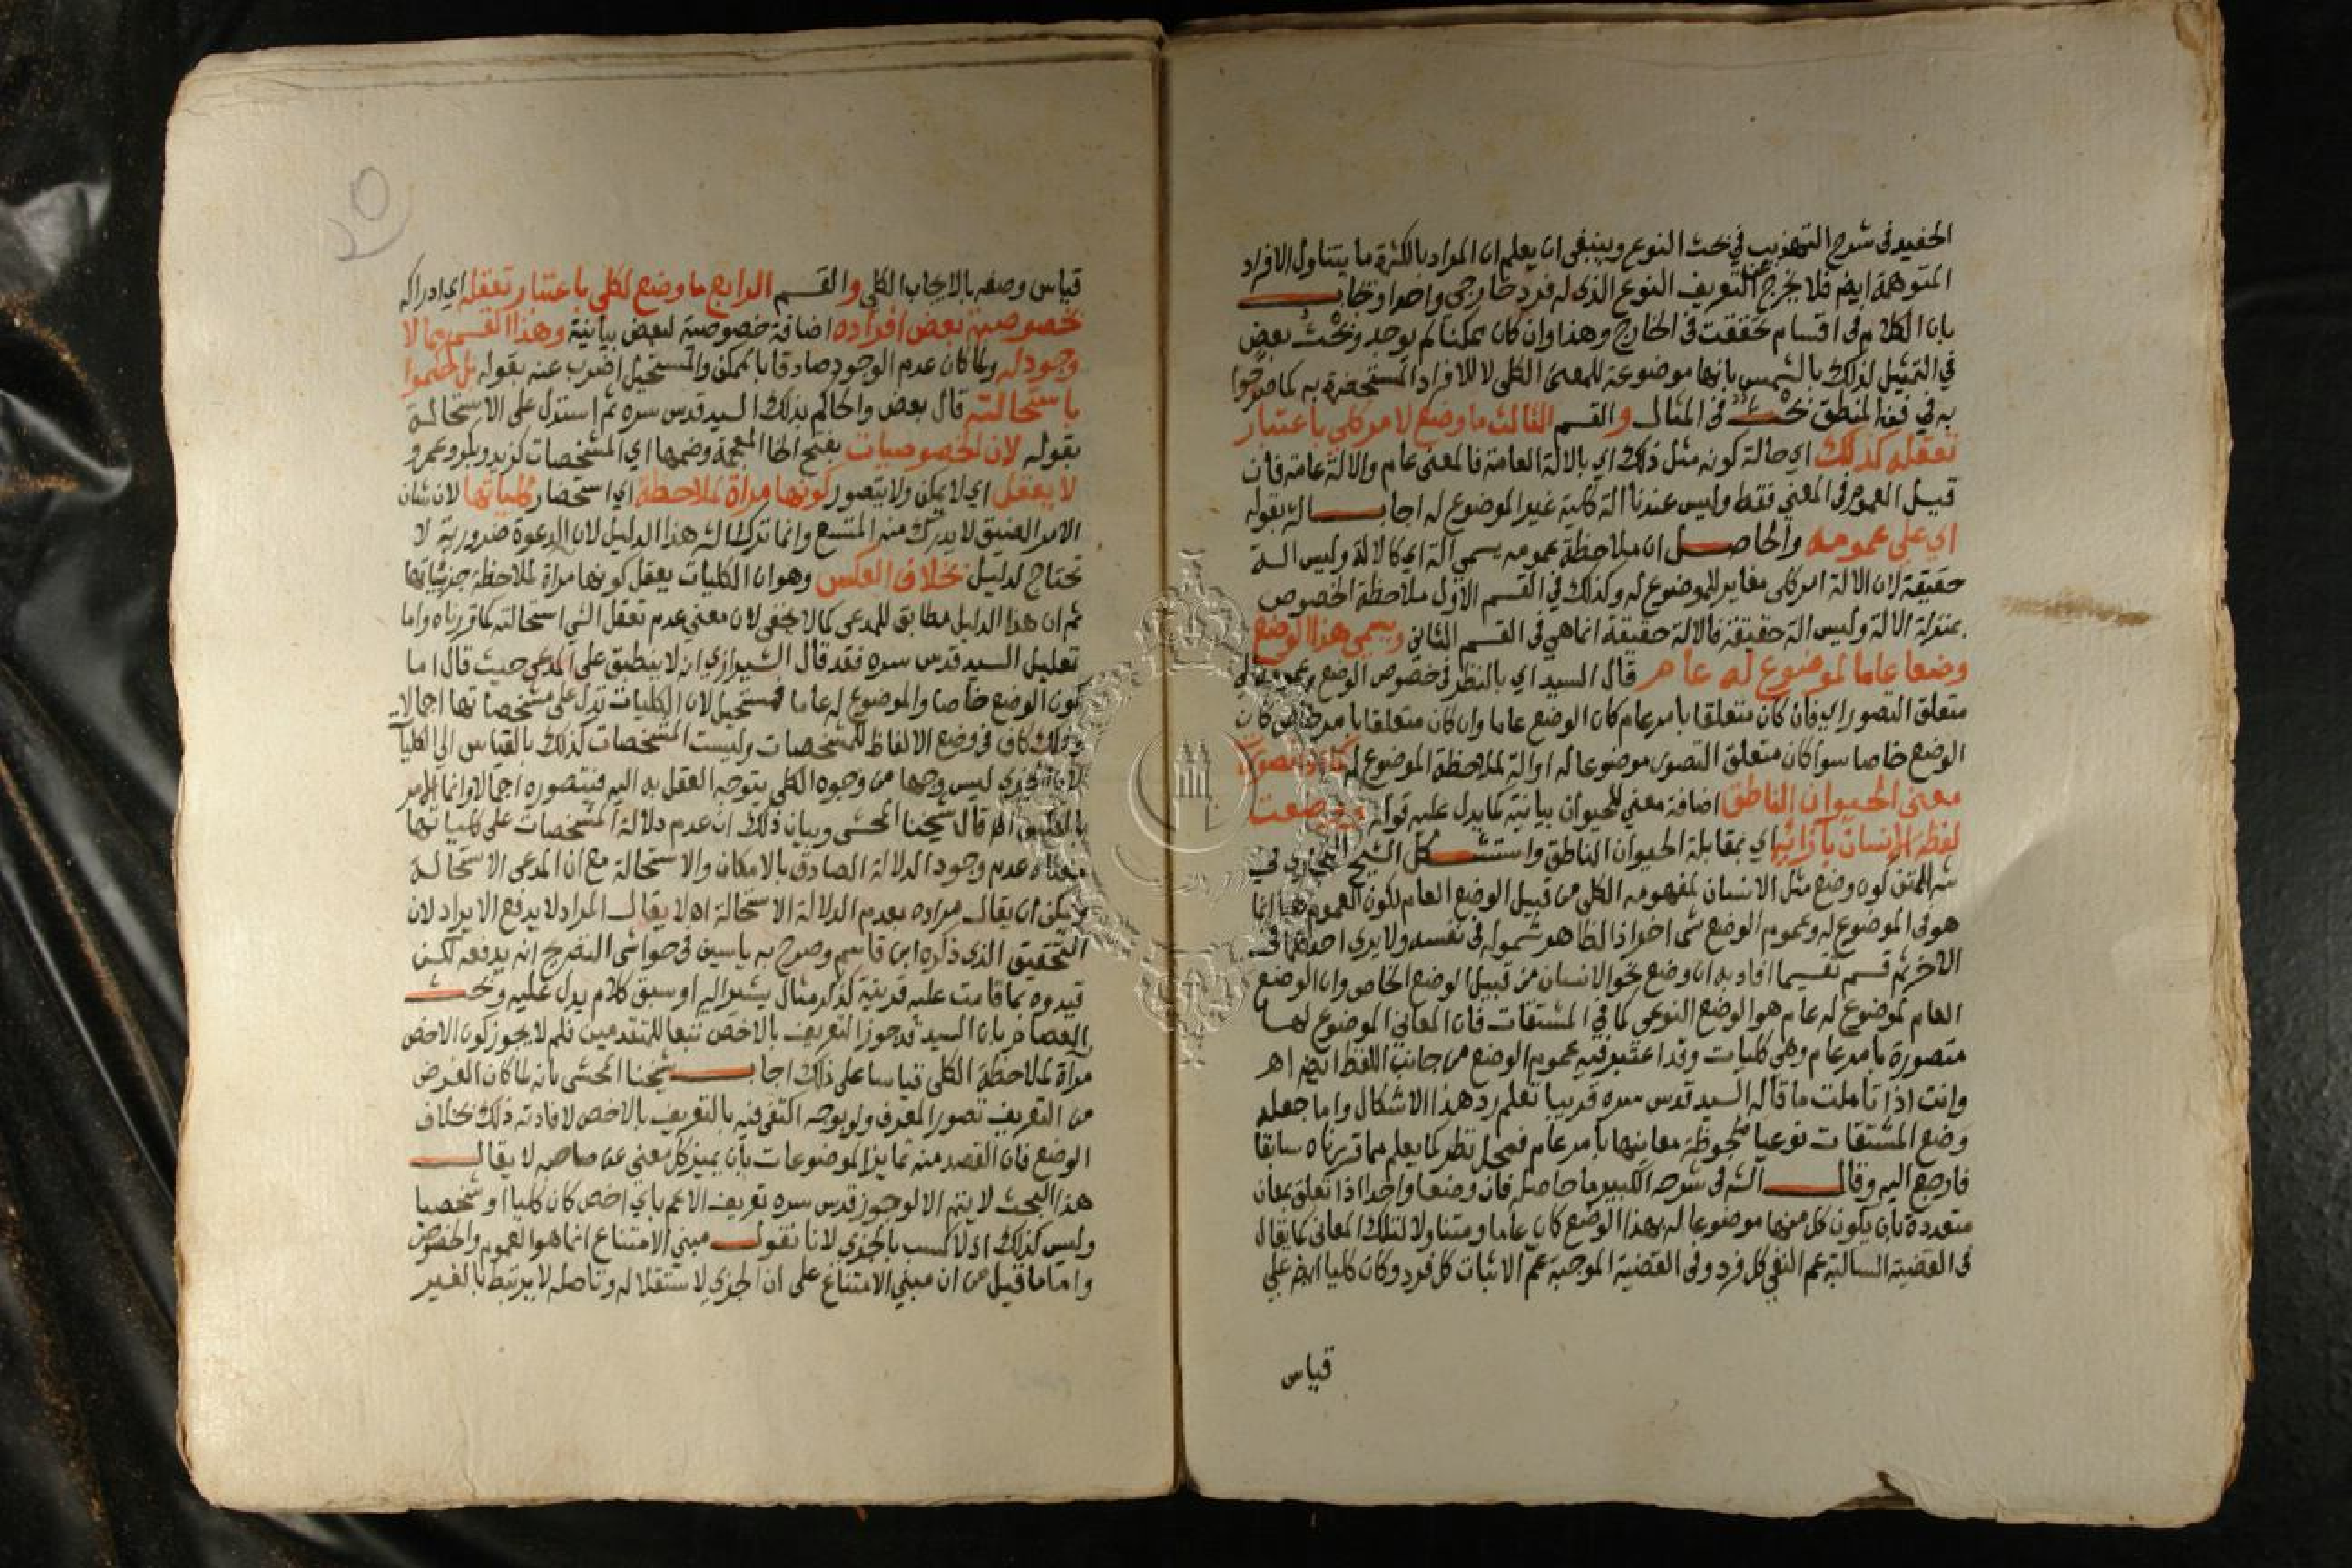 الحفيد في شرح التهذيب في بحث النوع وينبغي ان يعلم ان المراد بالكثرة ما يتناول الافراد
المتوهمة ايضا فلا يخرج عن التعريف النوع الذي له فرد خارجي واحد اوتجاب
بان الكلام في اقسام تحققت في الخارج وهذا وان كان ممكنا لم يوجد وبحث بعض
في التمثيل لذلك بالشمس بانها موضوعة للمعنى الكلي لا للافراد المستحضرة به كما صرحوا
به في فن المنطق بحث في المثال والقسم الثالث ما وضع لامر كلي باعتبار
تعقله كذلك اي حالة كونه مثل ذلك اي بالالة العامة فالمعنى عام والالة عامة فان
قيل العموم في المعنى فقط وليس عندنا الة كلية غير الموضوع له اجاب الش بقوله
اي على عمومه والحاصل ان ملاحظة عمومه يسمى الة اي كالالة وليس الة
حقيقة لان الالة امر كلي مغاير للموضوع له وكذلك في القسم الاول ملاحظة الخصوص
بمنزلة الالة وليس الة حقيقة فالالة حقيقة انما هي في القسم الثاني ويسمى هذا الوضع
وضعا عاما لموضوع له عام قال السيد اي بالنظر في خصوص الوضع وعمومه الى
متعلق التصور اي فان كان متعلقا بامر عام كان الوضع عاما وان كان متعلقا بامر خاص كان
الوضع خاصا سوا كان متعلق التصور موضوعا له او الة لملاحظة الموضوع له كما اذا تصورت
معنى الحيوان الناطق اضافة معنى للحيوان بيانية كما يدل عليه قوله ووضعت
لفظ الانسان بازائه اي بمقابلة الحيوان الناطق واستشكل الشيخ البخاري في
شرالمتن كون وضع مثل الانسان لمفهومه الكلي من قبيل الوضع العام لكون العموم هنا انما
هو في الموضوع له وعموم الوضع شى اخر اذ الظاهر شموله في نفسه ولا يرى احدهما في
الاخر ثم قسم تقسيما افاد به ان وضع نحو الانسان من قبيل الوضع الخاص وان الوضع
العام لموضوع له عام هو الوضع النوعي كما في المشتقات فان المعاني الموضوع لها
متصورة بامر عام وهي كليات وقد اعتبر فيه عموم الوضع من جانب اللفظ ايضا اهـ
وانت اذا تاملت ما قاله السيد قدس سره قريبا تعلم رد هذا الاشكال واما جعله
وضع المشتقات نوعيا ملحوظة معانيها بامر عام فمحل نظر كما يعلم مما قررناه سابقا
فارجع اليه وقال الش في شرحه الكبير ما حاصله فان وضعا واحدا اذا تعلق بمعان
متعددة بان يكون كل منها موضوعا له بهذا الوضع كان عاما ومتناولا لتلك المعاني كما يقال
في القضية السالبة عم النفي كل فرد وفي القضية الموجبة عم الاثبات كل فرد وكان كليا ايضا على
قياس
قياس وصفه بالايجاب الكلي والقسم الرابع ما وضع لكلي باعتبار تعقله اي ادراكه
بخصوصية بعض افراده اضافة خصوصية لبعض بيانية وهذا القسم مما لا
وجود له ولما كان عدم الوجود صادقا بالممكن والمستحيل اضرب عنه بقوله بل حكموا
باستحالته قال بعض والحاكم بذلك السيد قدس سره ثم استدل على الاستحالة
بقوله لان الخصوصيات بفتح الخا المعجمة وضمها اي المشخصات كزيد وبكر وعمرو
لا يعقل اي لا يمكن ولا يتصور كونها مراة لملاحظة اي استحضار كلياتها لان شان
الامر الضيق لا يدرك منه المتسع وانما ترك الش هذا الدليل لان الدعوة ضرورية لا
تحتاج لدليل بخلاف العكس وهو ان الكليات يعقل كونها مراة لملاحظة جزئياتها
ثم ان هذا الدليل مطابق للمدعى كما لا يخفى لان معنى عدم تعقل الشي استحالته كما قررناه واما
تعليل السيد قدس سره فقد قال الشيرازي انه لا ينطبق على المدعى حيث قال اما
كون الوضع خاصا والموضوع له عاما فمستحيل لان الكليات تدل على مشخصاتها اجمالا
وذلك كاف في وضع الالفاظ للمشخصات وليست المشخصات كذلك بالقياس الى الكليات
لان الجزي ليس وجها من وجوه الكلي يتوجه العقل به اليه فيتصوره اجمالا وانما الامر
بالعكس اهـ قال شيخنا المحشى وبيان ذلك ان عدم دلالة المشخصات على كلياتها
معناه عدم وجود الدلالة الصادق بالامكان والاستحالة مع ان المدعى الاستحالة
ويمكن ان يقال مراده بعدم الدلالة الاستحالة اهـ لا يقال المراد لا يدفع الايراد لان
التحقيق الذي ذكره ابن قاسم وصرح به ياسين في حواشي التصريح انه يدفعه لكن
قيدوه بما قامت عليه قرينة كذكر مثال يشير اليه او سبق كلام يدل عليه وبحث
العصام بان السيد قد جوز التعريف بالاخص تبعا للمتقدمين فلم لا يجوز كون الاخص
مراة لملاحظة الكلي قياسا على ذلك اجاب شيخنا المحشى بانه لما كان الغرض
من التعريف تصور المعرف ولو بوجه اكتفى فيه بالتعريف بالاخص لافادته ذلك بخلاف
الوضع فان القصد منه تمايز الموضوعات بان يميز كل معنى عن صاحبه لا يقال
هذا البحث لا يتم الا لو جوز قدس سره تعريف الاعم باي اخص كان كليا او شخصيا
وليس كذلك اذ لا كسب بالجزي لانا نقول مبنى الامتناع انما هو العموم والخصوص
واما ما قيل من ان مبنى الامتناع على ان الجزي لاستقلاله وتاصله لا يرتبط بالغير